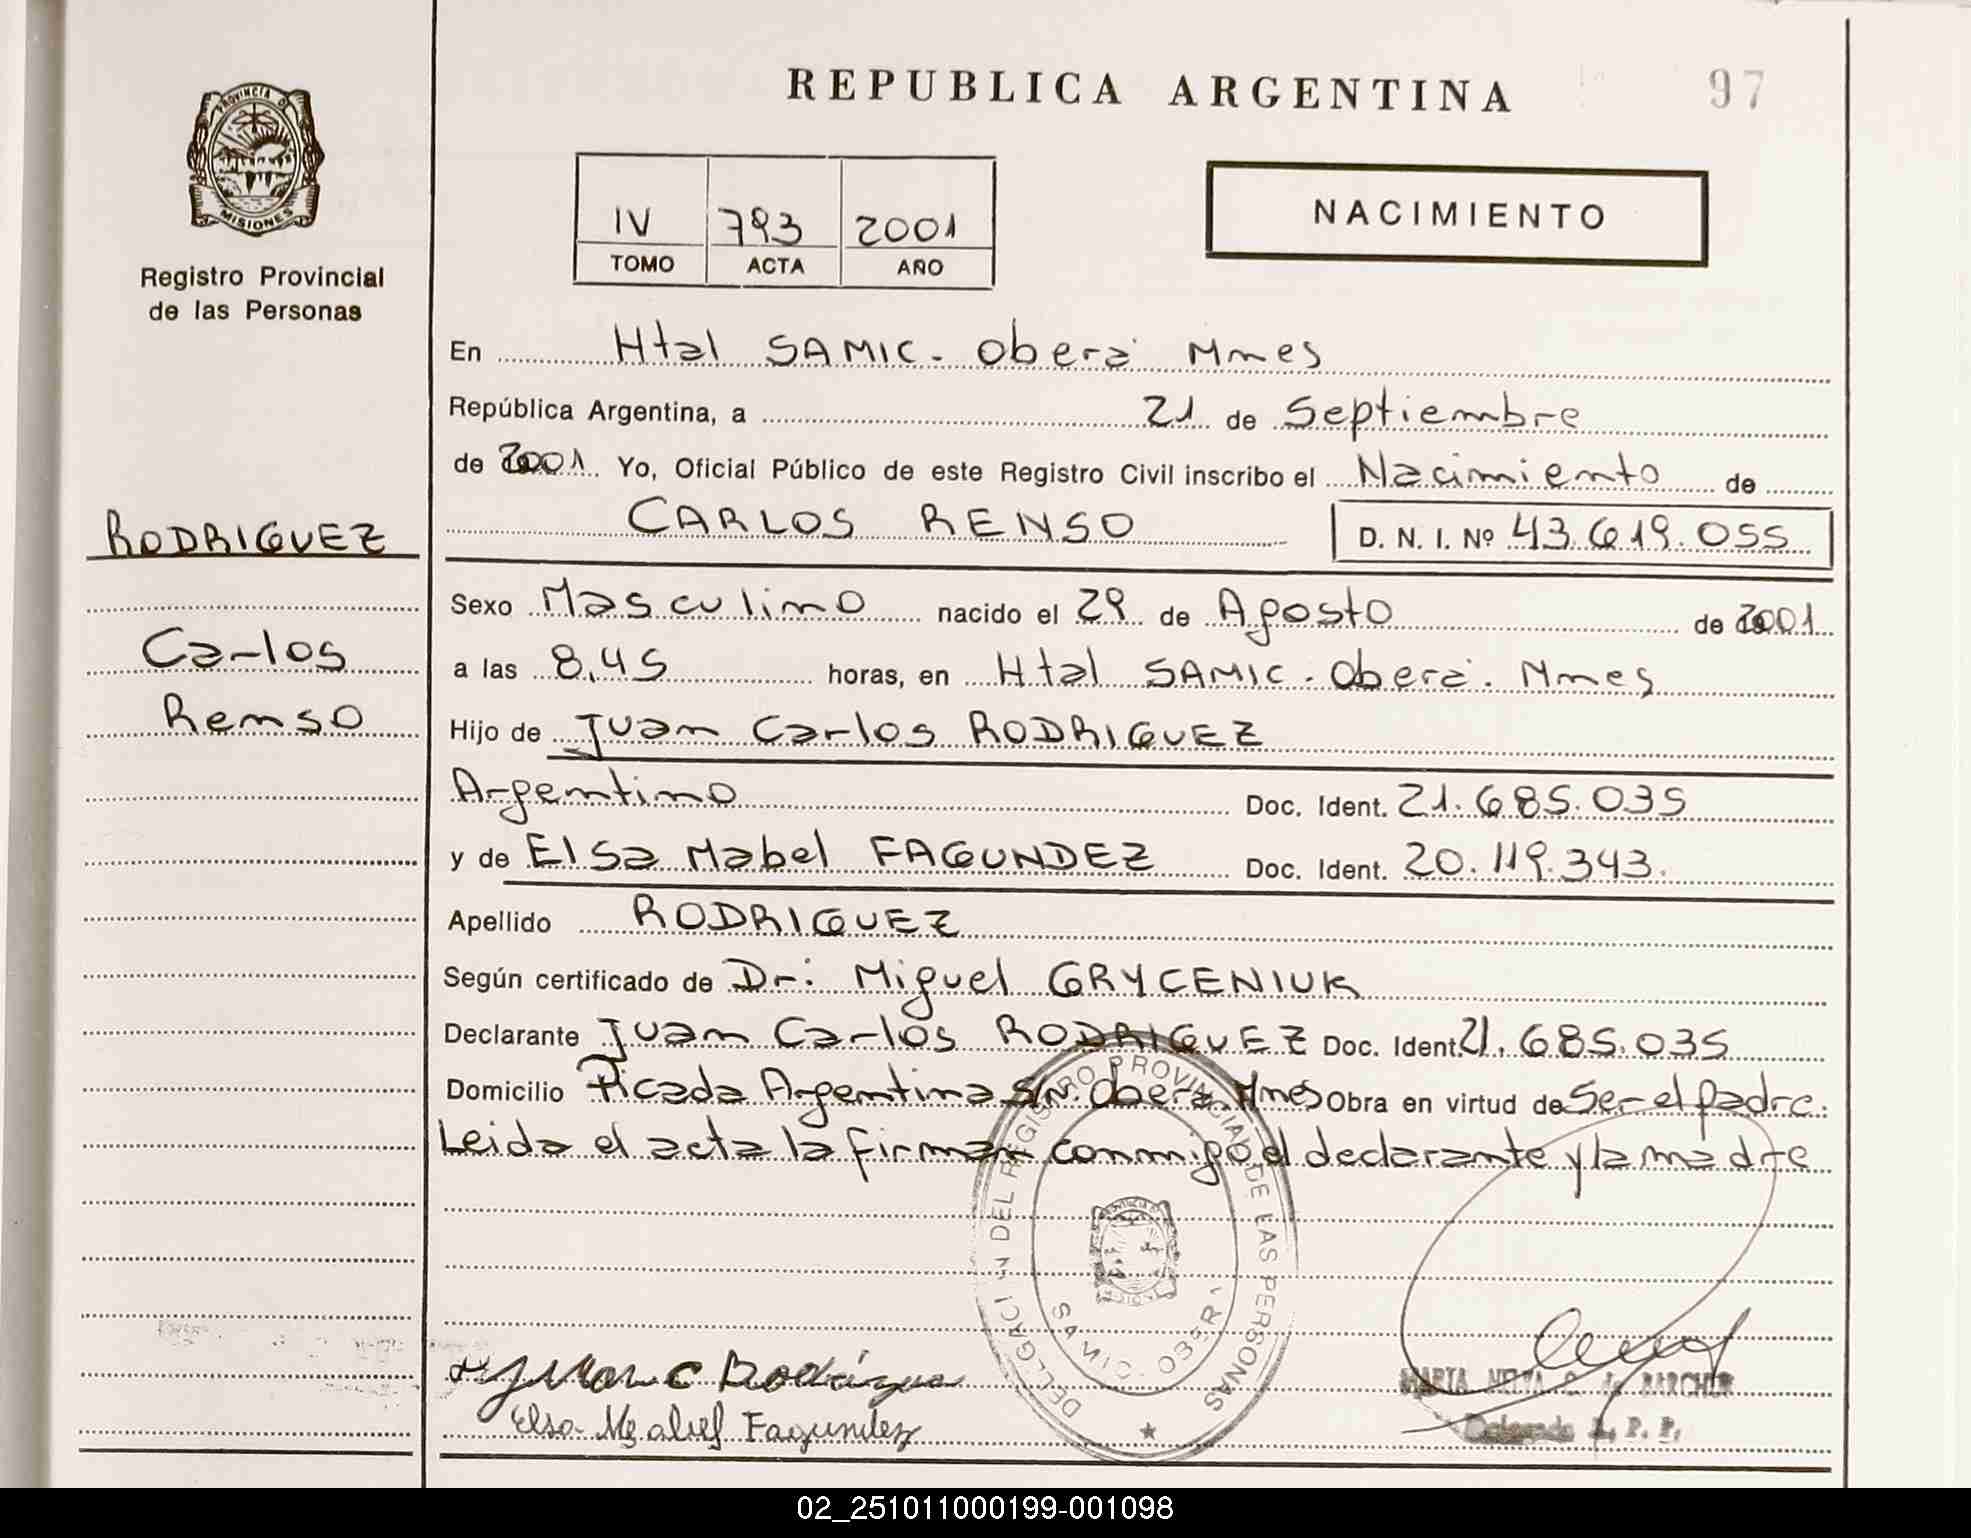 REPUBLICA ARGENTINA
97
PROVINCIA DE
MISIONES
Registro Provincial
de las Personas
IV 793 2001
TOMO ACTA AÑO
NACIMIENTO
En Htal SAMIC. Oberá Mnes
República Argentina, a 21 de Septiembre
de 2001 Yo, Oficial Público de este Registro Civil inscribo el Nacimiento de
CARLOS RENSO D. N. I. Nº 43.619.055
RODRIGUEZ
Carlos
Renso
Sexo Masculino nacido el 29 de Agosto de 2001
a las 8,45 horas, en Htal SAMIC. Oberá. Mnes
Hijo de Juan Carlos RODRIGUEZ
Argentino Doc. Ident. 21.685.035
y de Elsa Mabel FAGUNDEZ Doc. Ident. 20.119.343.
Apellido RODRIGUEZ
Según certificado de Dr: Miguel GRYCENIUK
Declarante Juan Carlos RODRIGUEZ Doc. Ident. 21.685.035
Domicilio Picada Argentina S/N. Oberá. Mnes Obra en virtud de Ser el padre.
Leida el acta la firman conmigo el declarante y la madre
DEL REGISTRO PROVINCIAL DE LAS PERSONAS
SAMIC.
Juan C Rodríguez
Elsa Mabel Fagundez
MARTA
Delegada R. P. P.
02_251011000199-001098